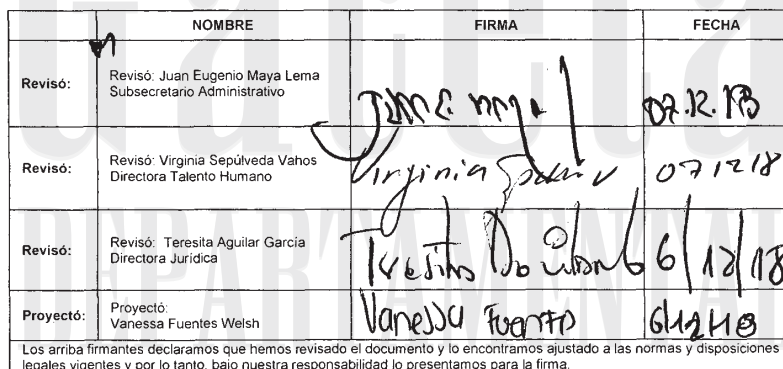 NOMBRE FIRMA FECHA
Revisó: Revisó: Juan Eugenio Maya Lema
Subsecretario Administrativo
07.12.18
Revisó: Revisó: Virginia Sepúlveda Vahos
Directora Talento Humano
Virginia 071218
Revisó: Revisó: Teresita Aguilar García
Directora Jurídica
6/12/18
Proyectó: Proyectó:
Vanessa Fuentes Welsh
Vanessa Fuentes 6/12/18
Los arriba firmantes declaramos que hemos revisado el documento y lo encontramos ajustado a las normas y disposiciones
legales vigentes y por lo tanto, bajo nuestra responsabilidad lo presentamos para la firma.
DEPARTAMENTAL